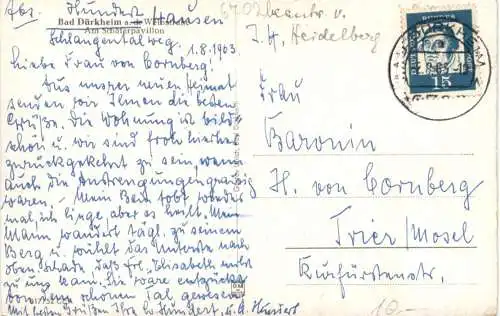 Abs. Hundert Hausen
Bad Dürkheim a. d. Weinstraße
Am Schäferpavillon
Schlangentalweg. 1.8.1963
Liebe Frau von Cornberg!
Aus unsrer neuen Heimat
senden wir Ihnen die besten
Grüße. Die Wohnung ist bild-
schön u. wir sind froh hierher
zurückgekehrt zu sein, wenn
auch die Anstrengungen
waren. – Mein Bein tobt wieder
mal, ich liege, aber es heilt. Mein
Mann wandert tägl. zu seinem
Berg u. wühlt das Unterste nach
oben. Schade, daß Frl. Elisabeth nicht
zu uns kam. Sie wäre entzückt
von dem schönen Tal gewesen.
Mit besten Grüßen Ihre Hundert u. Hundert
6702
z. H. Heidelberg
DEUTSCHE BUNDESPOST
15
Frau
Baronin
H. von Cornberg
Trier/Mosel
Kurfürstenstr.
10,-